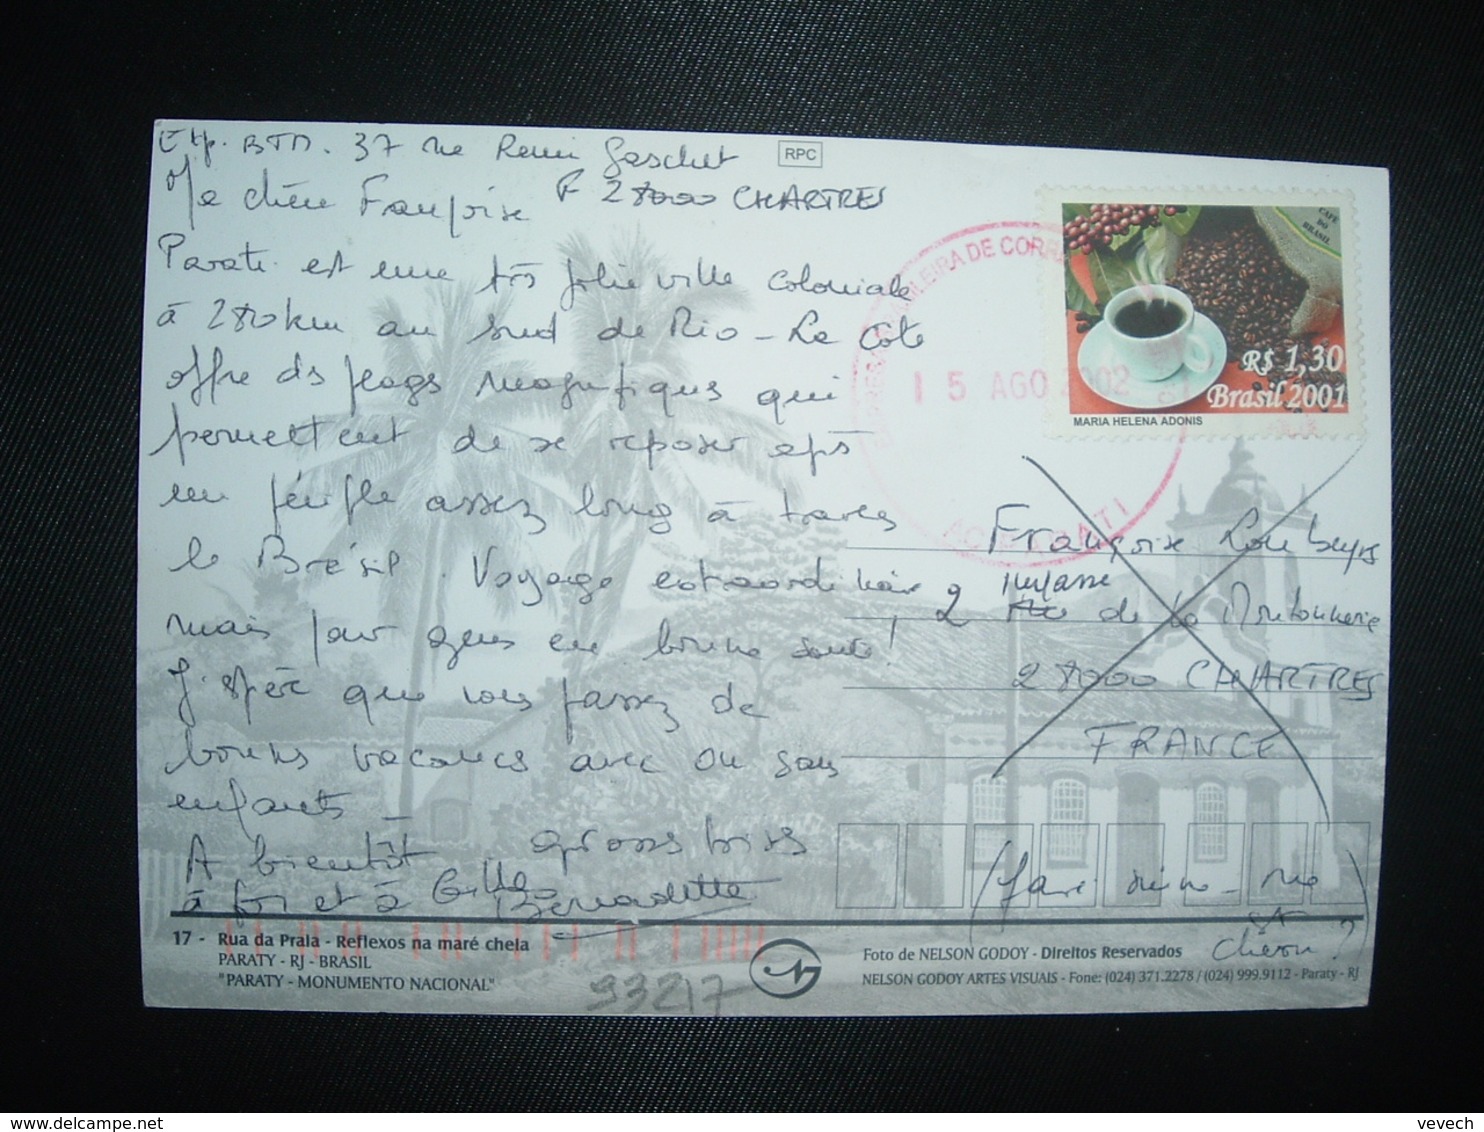 Exp. BTD. 37 rue Remi Gaschet
F 28000 CHARTRES
RPC
Ma chère Françoise
Parati est une très jolie ville coloniale
à 280 km au sud de Rio - La Côte
offre ds plages magnifiques qui
permettent de se reposer après
un périple assez long à travers
le Brésil. Voyage extraordinaire
mais pour gens en bonne santé!
J'espère que vous passez de
bonnes vacances avec ou sans
enfants
A bientôt grosses bises
à toi et à Gilles
Bernadette
CAFÉ
DO
BRASIL
R$ 1,30
Brasil 2001
MARIA HELENA ADONIS
BRASILEIRA DE CORR
15 AGO 2002
PARATI
Françoise
2 impasse de la Moutonnerie
28000 CHARTRES
FRANCE
rue
St
Chéron?
17 - Rua da Praia - Reflexos na maré cheia
PARATY - RJ - BRASIL
"PARATY - MONUMENTO NACIONAL"
93217
Foto de NELSON GODOY - Direitos Reservados
NELSON GODOY ARTES VISUAIS - Fone: (024) 371.2278 / (024) 999.9112 - Paraty - RJ
vevech